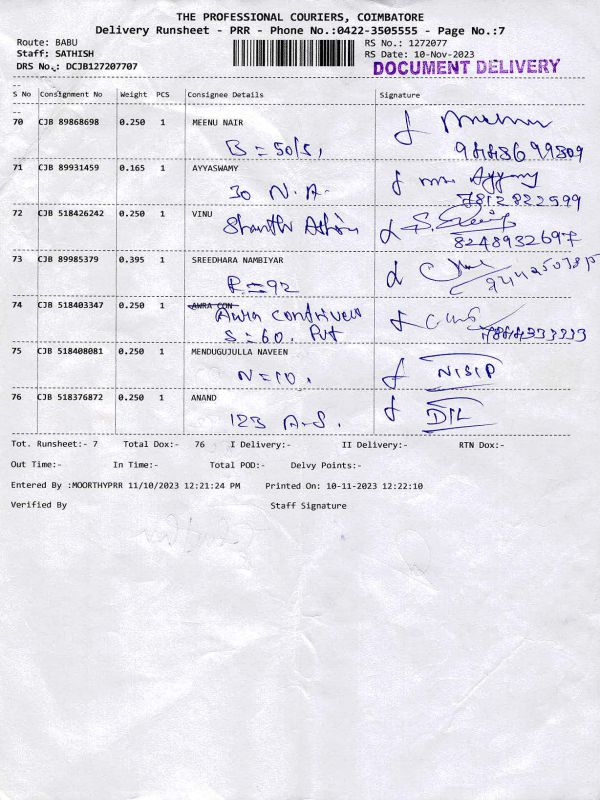 THE PROFESSIONAL COURIERS, COIMBATORE
Delivery Runsheet - PRR - Phone No.:0422-3505555 - Page No.:7
Route: BABU RS No.: 1272077
Staff: SATHISH RS Date: 10-Nov-2023
DRS No.: DCJB127207707 DOCUMENT DELIVERY
S No Consignment No Weight PCS Consignee Details Signature
70 CJB 89868698 0.250 1 MEENU NAIR
B = 50/5,
71 CJB 89931459 0.165 1 AYYASWAMY
30 N.A. 7812822599
72 CJB 518426242 0.250 1 VINU
Shanthi 8248932697
73 CJB 89985379 0.395 1 SREEDHARA NAMBIYAR
R=92
74 CJB 518403347 0.250 1 AWRA CON
Awra
S=60. Pvt
75 CJB 518408081 0.250 1 MENDUGUJULLA NAVEEN
N=10.
76 CJB 518376872 0.250 1 ANAND
123 A-S. DIL
Tot. Runsheet:- 7 Total Dox:- 76 I Delivery:- II Delivery:- RTN Dox:-
Out Time:- In Time:- Total POD:- Delvy Points:-
Entered By :MOORTHYPRR 11/10/2023 12:21:24 PM Printed On: 10-11-2023 12:22:10
Verified By Staff Signature